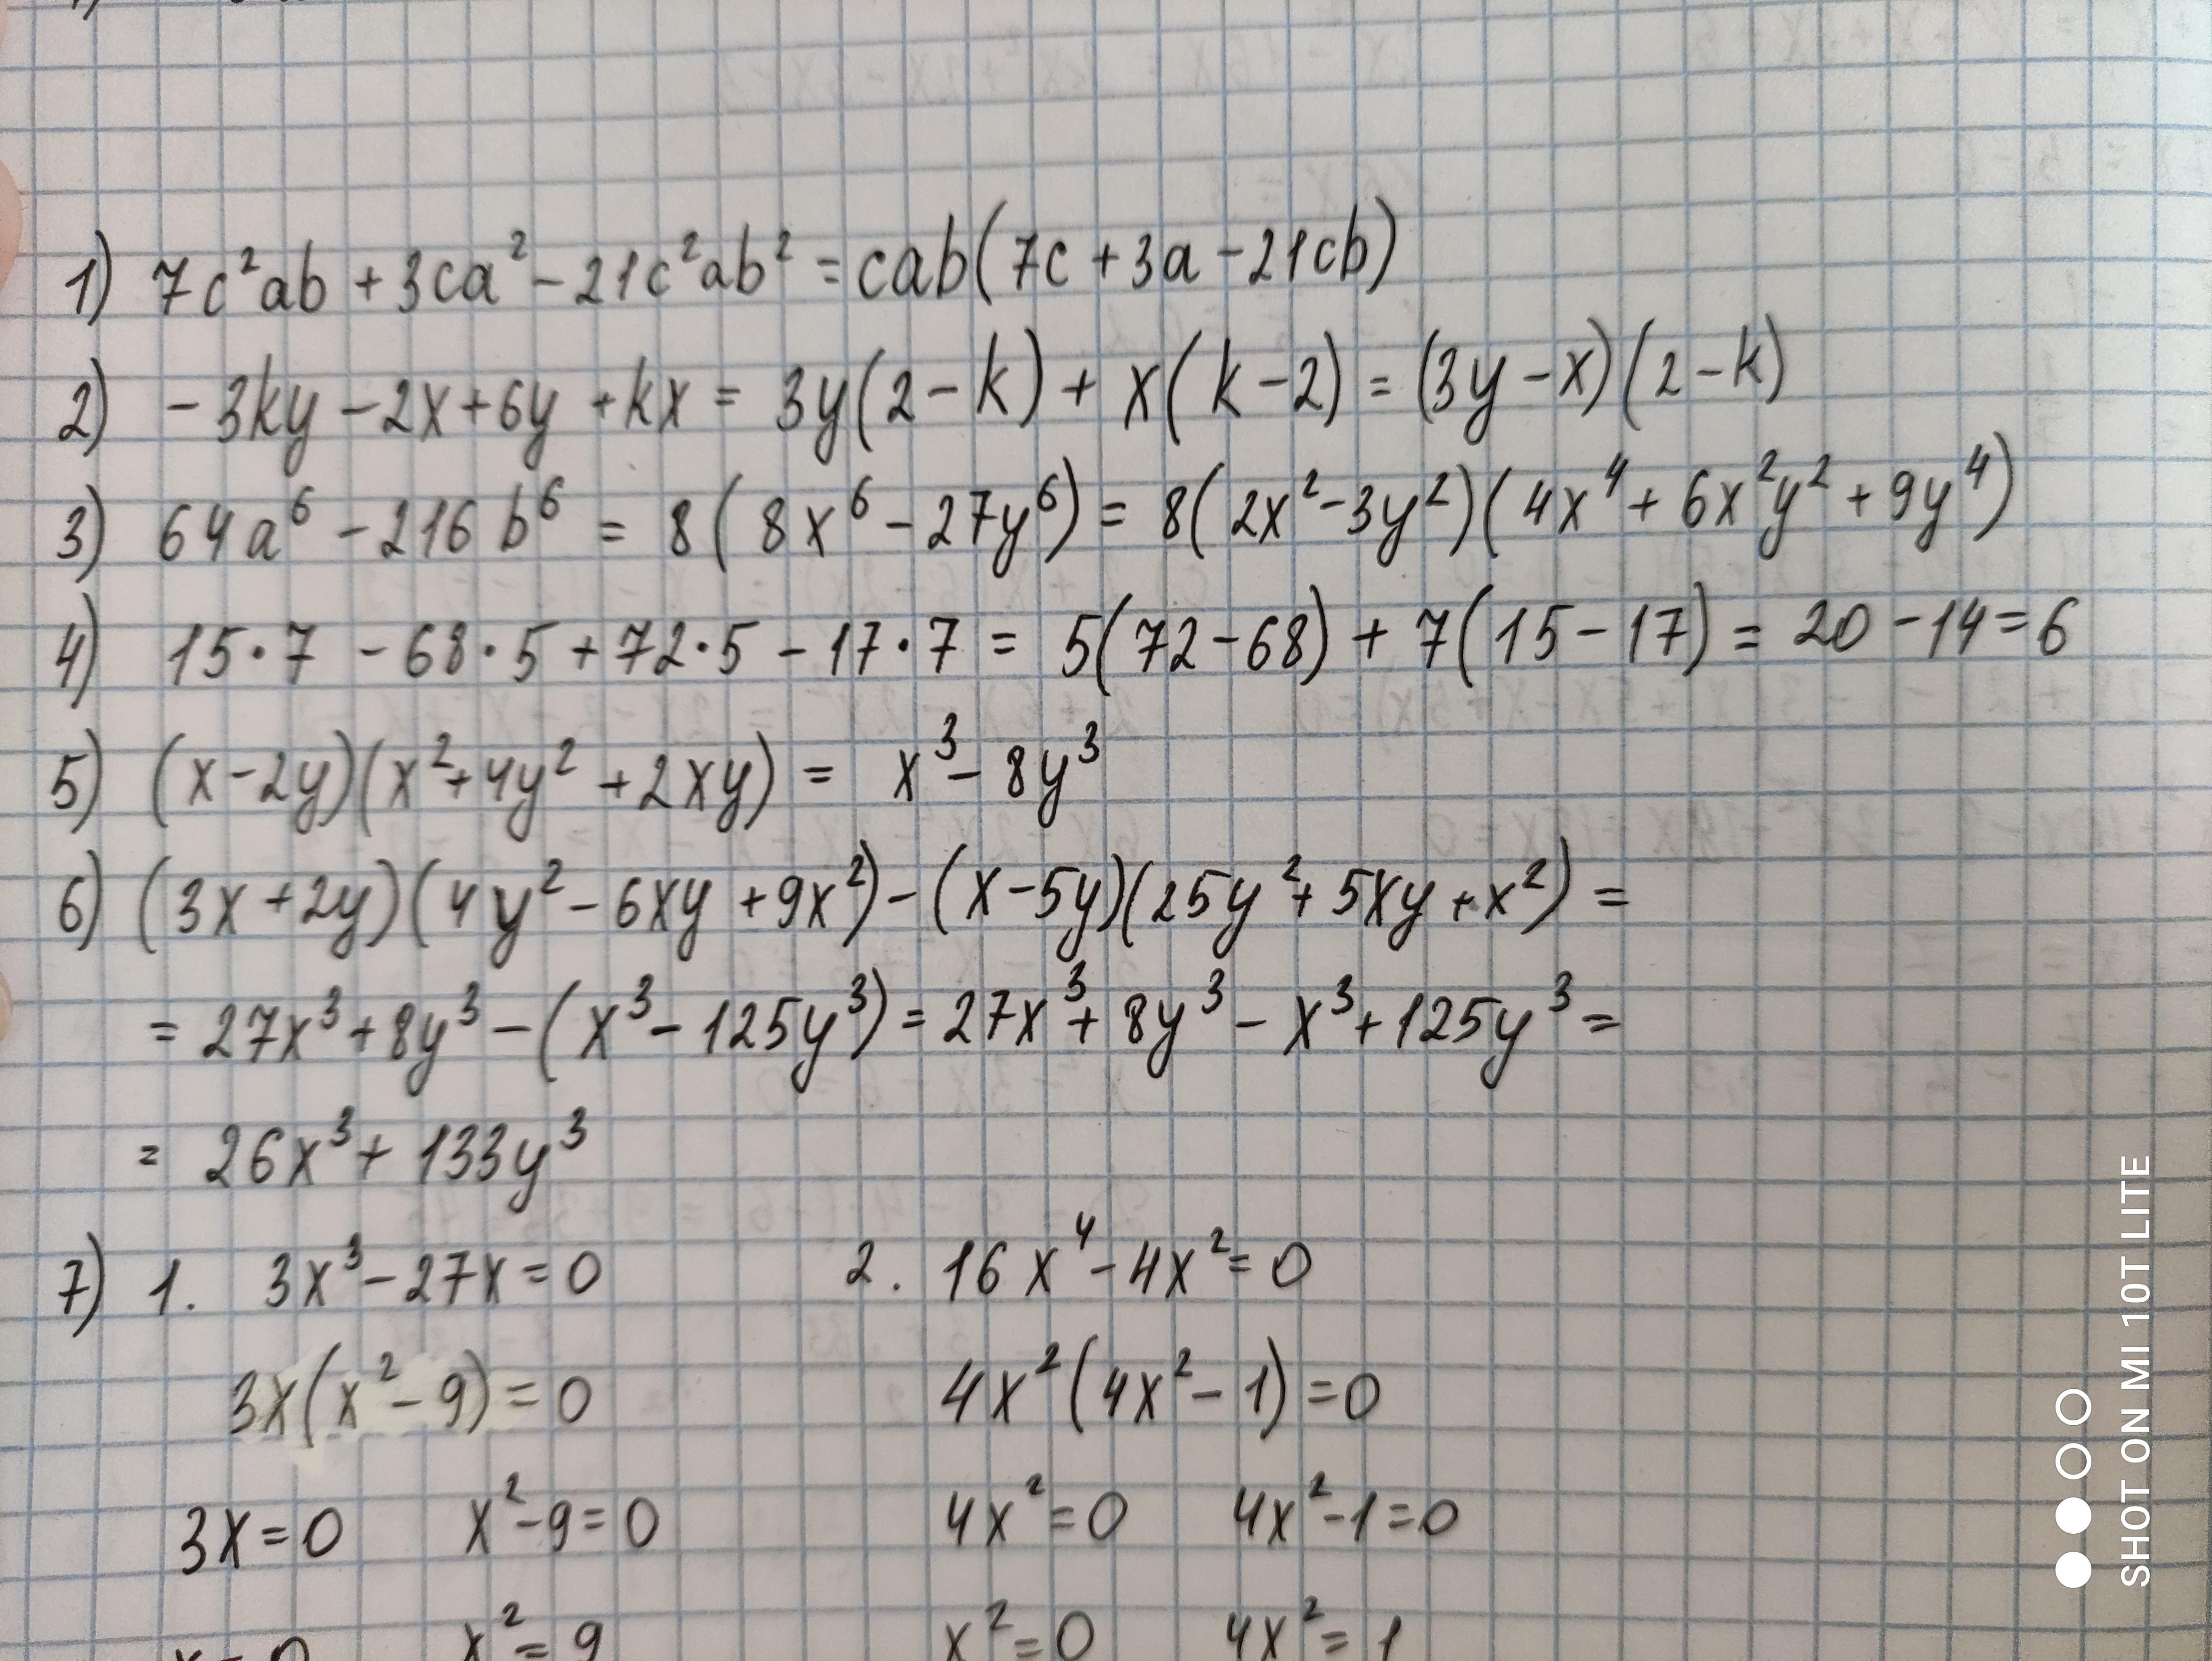 1) 7c²ab + 3ca² - 21c²ab² = cab(7c + 3a - 21cb)
2) - 3ky - 2x + 6y + kx = 3y(2 - k) + x(k - 2) = (3y - x)(2 - k)
3) 64a⁶ - 216b⁶ = 8(8x⁶ - 27y⁶) = 8(2x² - 3y²)(4x⁴ + 6x²y² + 9y⁴)
4) 15·7 - 68·5 + 72·5 - 17·7 = 5(72 - 68) + 7(15 - 17) = 20 - 14 = 6
5) (x - 2y)(x² + 4y² + 2xy) = x³ - 8y³
6) (3x + 2y)(4y² - 6xy + 9x²) - (x - 5y)(25y² + 5xy + x²) =
= 27x³ + 8y³ - (x³ - 125y³) = 27x³ + 8y³ - x³ + 125y³ =
= 26x³ + 133y³
7) 1. 3x³ - 27x = 0 2. 16x⁴ - 4x² = 0
3x(x² - 9) = 0 4x²(4x² - 1) = 0
3x = 0 x² - 9 = 0 4x² = 0 4x² - 1 = 0
x² = 9 x² = 0 4x² = 1
SHOT ON MI 10T LITE